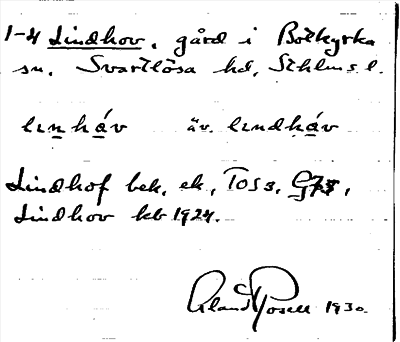 1-4 Lindhov, gård i Botkyrka
sn, Svartlösa hd, Sthlms l.
linháv äv. lindháv
Lindhof bek, ek, TOS 3, G78,
Lindhov kb 1924.
Erland Rosell 1930